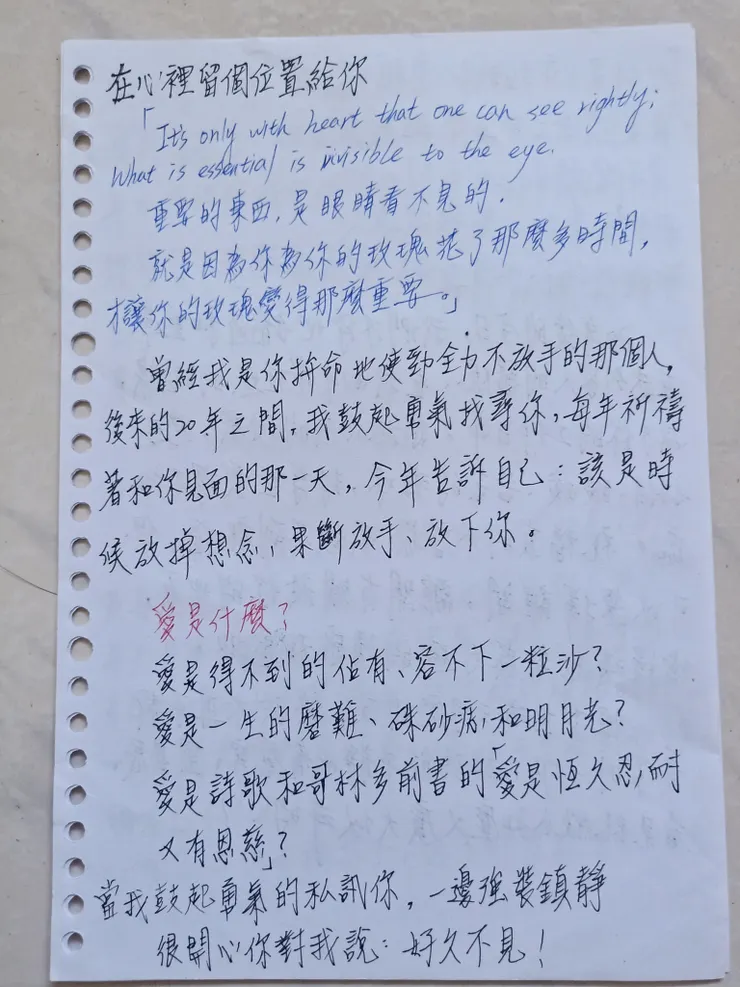 在心裡留個位置給你
「It's only with heart that one can see rightly;
What is essential is invisible to the eye.
重要的東西,是眼睛看不見的.
就是因為你為你的玫瑰花了那麼多時間,
才讓你的玫瑰變得那麼重要。」
曾經我是你拚命地使勁全力不放手的那個人,
後來的20年之間,我鼓起勇氣找尋你,每年祈禱
著和你見面的那一天,今年告訴自己:該是時
候放掉想念、果斷放手、放下你。
愛是什麼?
愛是得不到的佔有、容不下一粒沙?
愛是一生的磨難、硃砂痣和明月光?
愛是詩歌和哥林多前書的「愛是恆久忍耐
又有恩慈」?
當我鼓起勇氣的私訊你,一邊強裝鎮靜
很開心你對我說:好久不見!